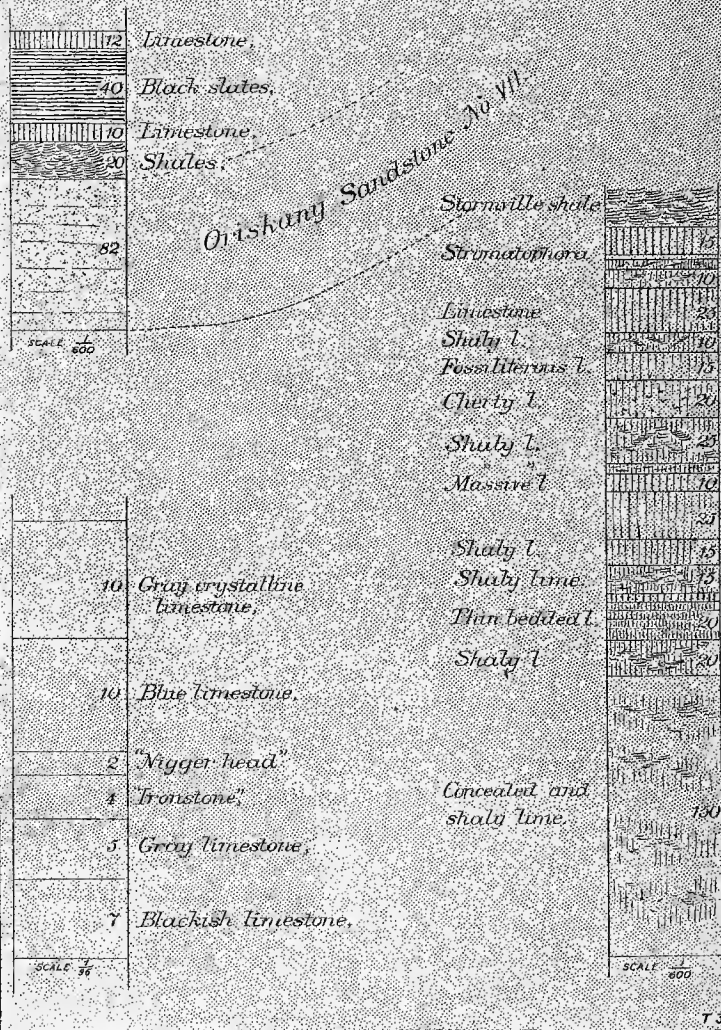 12 Limestone,
40 Black slates,
10 Limestone,
20 Shales,
82
SCALE 1/600
Oriskany Sandstone No VII.
10 Gray crystalline
limestone,
10 Blue limestone,
2 "Nigger head"
4 "Ironstone",
5 Gray limestone,
7 Blackish limestone,
SCALE
Stormville shale
15
Stromatophora
10
Limestone 25
Shaly l. 10
Fossiliferous l. 15
Cherty l. 20
Shaly l. 25
" "
Massive l 10
Shaly l. 15
Shaly lime. 15
Thin bedded l. 20
Shaly l 20
Concealed and
shaly lime. 130
SCALE 1/600